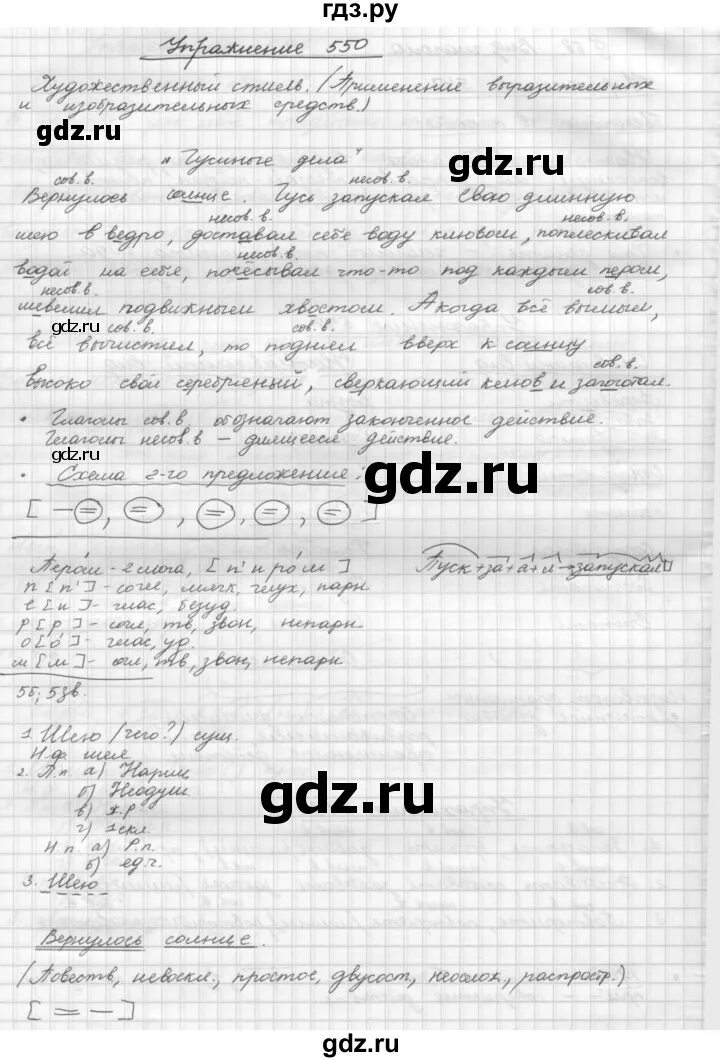 гдз.ру
Упражнение 550
Художественный стиль. (Применение выразительных
и изобразительных средств.)
gdz.ru
gdz.ru
"Гусиные дела"
сов. в. несов. в.
Вернулось солнце. Гусь запускал свою длинную
несов. в. несов. в.
шею в ведро, доставал себе воду клювом, поплескивал
несов. в.
водой на себя, почёсывал что-то под каждым пером,
несов. в. сов. в.
шевелил подвижным хвостом. А когда всё вымыл,
gdz.ru
сов. в. сов. в.
всё вычистил, то поднял вверх к солнцу
сов. в.
высоко свой серебряный, сверкающий клюв и загоготал.
• Глаголы сов. в обозначают законченное действие.
Глаголы несов. в – длящееся действие.
gdz.ru
• Схема 2-го предложения:
[ – =, =, =, =, = ]
gdz.ru
Перо́м - 2 слога, [п' и р о́ м] Пуск+за+а+л→запускал
п [п'] - согл, мягк, глух, парн
е [и] - глас, безуд.
gdz.ru
р [р] - согл, тв, звон, непарн
о [о́] - глас, уд.
м [м] - согл, тв, звон, непарн
5б, 5зв.
1 Шею (чего?) сущ.
gdz.ru
Н.ф. шея
2. П.п а) Нариц
б) Неодуш
gdz.ru
в) ж.р
г) 1 скл.
Н.п. а) Р.п.
б) ед.ч.
3. Шею
gdz.ru
Вернулось солнце.
(Повеств, невоскл., простое, двусост, неослож, распростр.)
[ = – ]
gdz.ru
gdz.ru